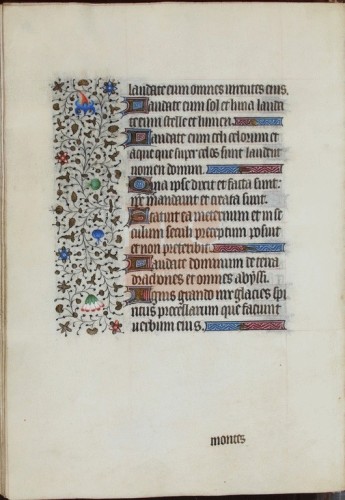 laudate eum omnes virtutes eius.
Laudate eum sol et luna laudа
te eum stelle et lumen.
Laudate eum celi celorum et
aque que super celos sunt laudent
nomen domini.
Quia ipse dixit et facta sunt:
ipse mandavit et creata sunt.
Statuit ea in eternum et in se
culum seculi preceptum posuit
et non preteribit.
Laudate dominum de terra
dracones et omnes abyssi.
Ignis grando nix glacies spi
ritus procellarum que faciunt
verbum eius.
montes